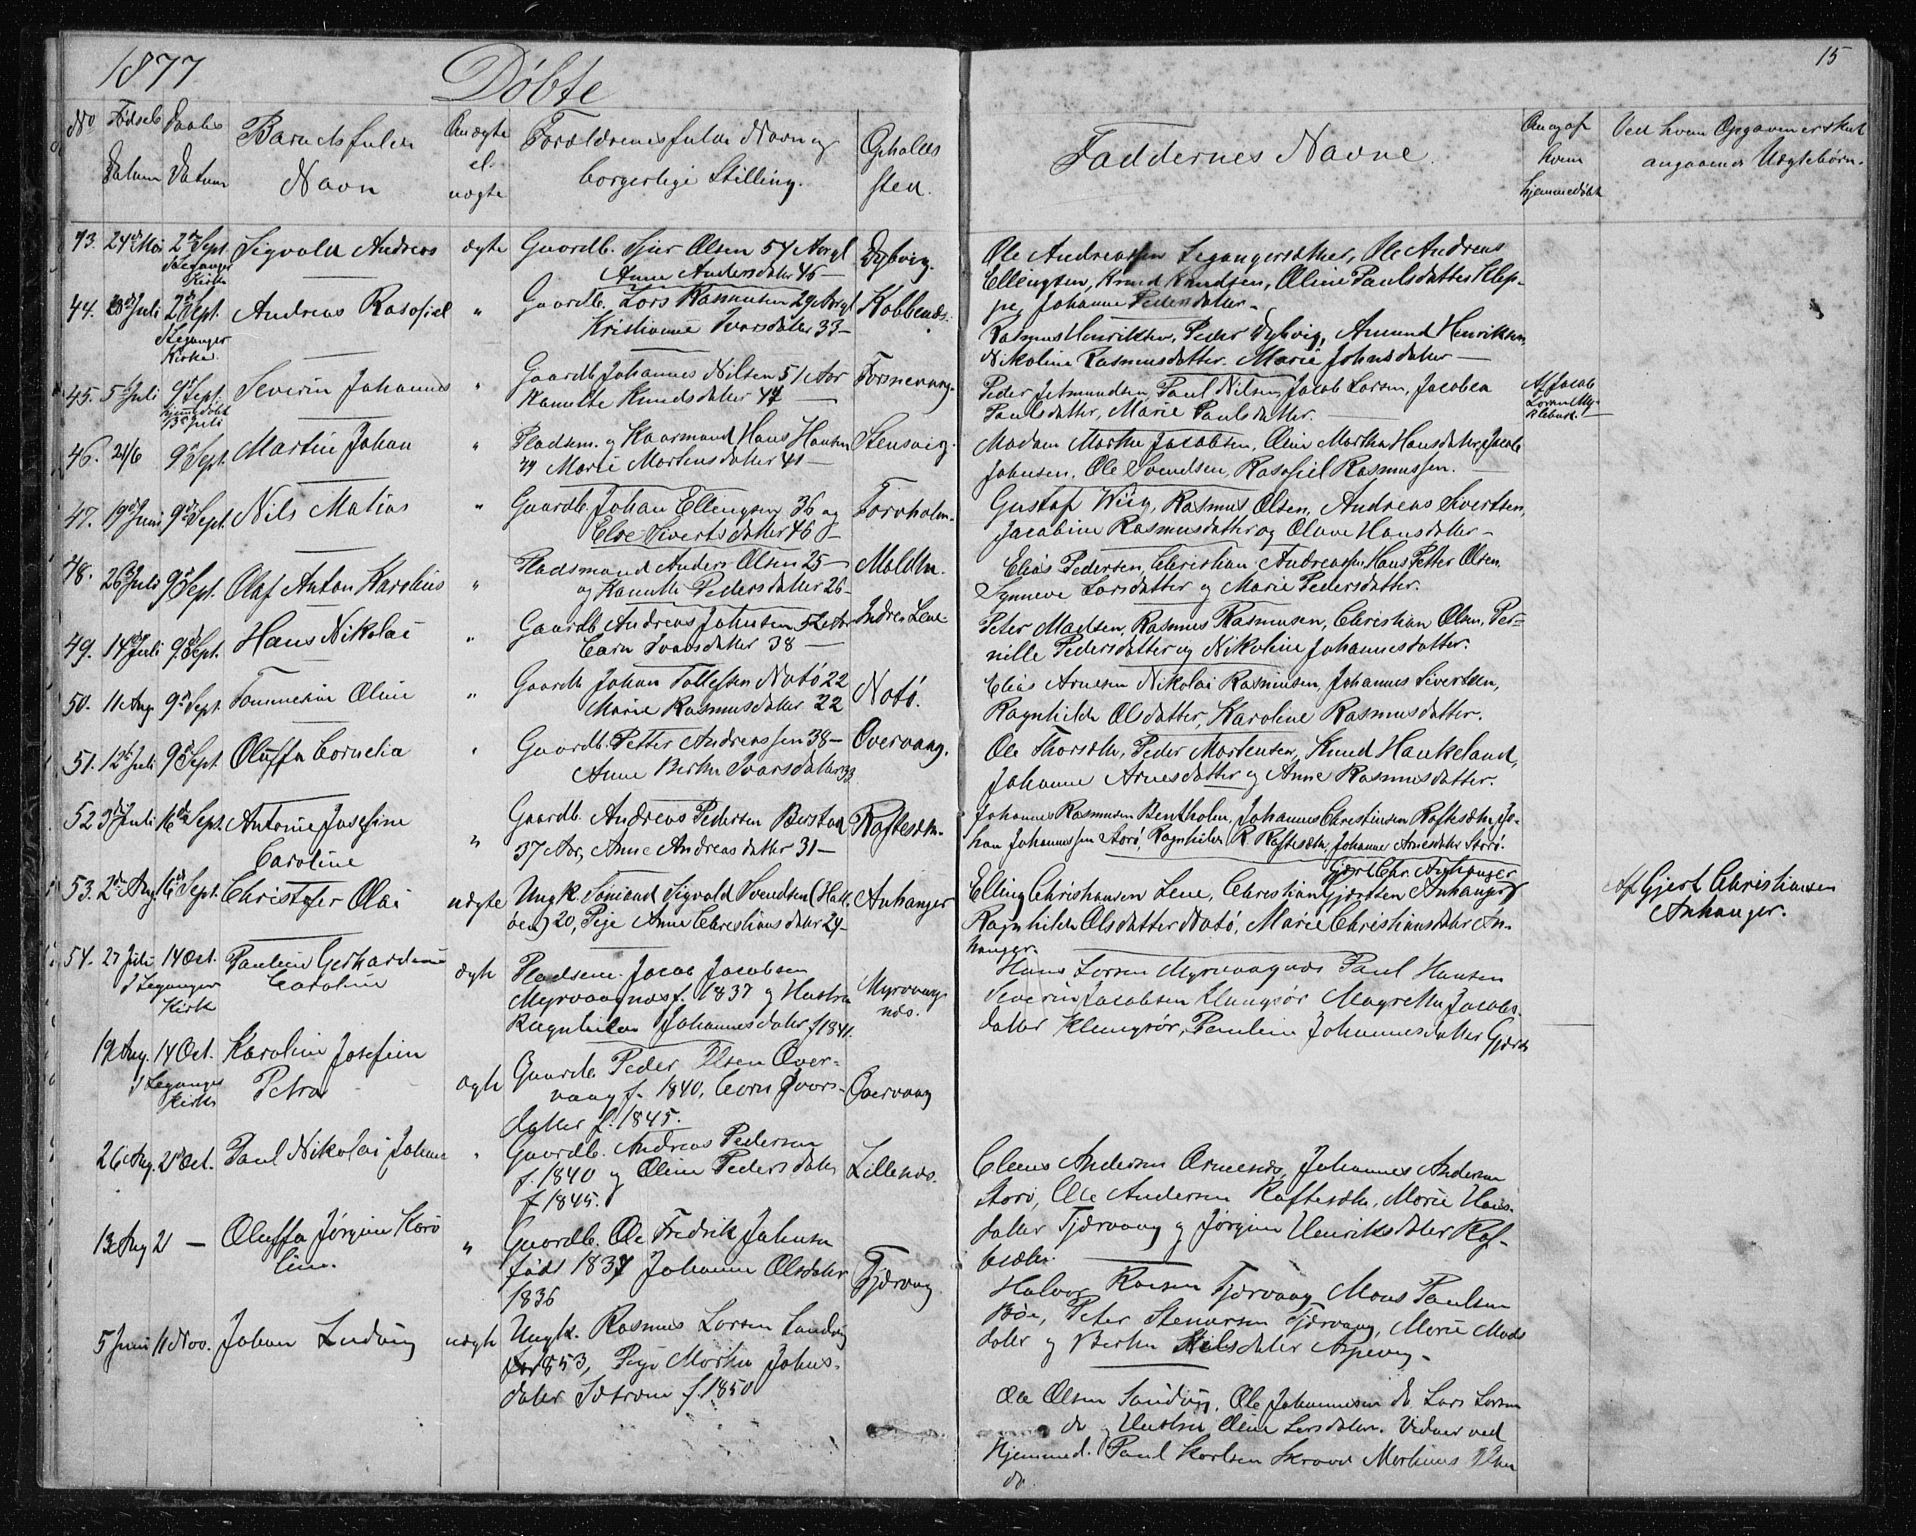 1877
Döbte
15
No
Fødsels Datum
Daabs Datum
Barnets fulde Navn
Om ægte el. uægte
Forældrenes fulde Navn og borgerlige Stilling.
Opholds sted.
Faddernes Navne.
Om og af hvem hjemmedøbt
Ved hvem Opgaven er skeet angaaende Uægtebørn.
43. 24de Mai 2den Sept. Sigvald Andreas ægte Gaardb. Sjur Olsen 54 Aar gl Dybvig.
i Leganger Kirke Anne Andersdatter 45 —
Ole Andreassen Legangersæther, Ole Andreas
Ellingsen, Knud Knudsen, Oline Paulsdatter Klep-
pe, Johanne Pedersdatter —
44. Juli 2den Sept. Andreas Rasofiel " Gaardb. Lars Rasmusen 29 Aar gl Kobbenæs.
i Leganger Kirke. Kristianne Ivarsdatter 33 —
Rasmus Henriksen, Peder Dybvig, Amund Henriksen
Nikoline Rasmusdatter. Marie Johnsdatter —
45. 5te Juli 9de Sept. Severin Johannes " Gaardb. Johannes Nilsen 51 Aar
hjemdøbt Juli Kanutte Knudsdatter 44 —
Peder Jetmundsen, Paul Nilsen, Jacob Larsen, Jacobea
Paulsdatter, Marie Paulsdatter. —
Af Jacob Larsen
46. 21/6 9de Sept. Martin Johan " Pladsm. og Kaarmand Hans Hansen Stensvig.
49 Marie Mortensdatter 41 —
Madam Marthe Jacobsen, Oline Martha Hansdatter, Jacob
Johnsen, Ole Svendsen, Rasofiel Rasmussen. —
47. 19de Juni 9de Sept. Nils Matias " Gaardb. Johan Ellingsen 36 og
Else Sivertsdatter 46 —
Gustaf Wiig, Rasmus Olsen, Andreas Sivertsen,
Jacobine Rasmusdatter og Olave Hansdatter —
48. 26de Juli 9de Sept. Olaf Anton Karolius " Pladsmand Anders Olsen 25 —
og Kanutte Pedersdatter 26 —
Elias Pedersen, Christian Andreassen, Hans Petter Olsen
Synneve Larsdatter og Marie Pedersdatter.
49. 14de Juli 9de Sept. Hans Nikolai " Gaardb. Andreas Johnsen 52 Aar Indre Lene
Carn 38 —
Peter Madsen, Rasmus Rasmusen, Christian Olsen, Per-
nille Pedersdatter og Nikoline Johannesdatter.
50. 11 Aug. 9de Sept. Tommesine Oline " Gaardb. Johan Tollefsen Notö 22 Notö.
Marie Rasmusdatter 22
Elias Arnesen Nikolai Rasmusen, Johannes Sivertsen,
Ragnhilde Olsdatter, Karoline Rasmusdatter.
51. 12te Juli 9de Sept. Oluffa Cornelia " Gaardb. Petter Andreassen 38 — Overvaag.
Anne Berthe Ivarsdatter 33
Ole Thorsæth, Peder Mortensen, Knud Haukeland,
Johanne Arnesdatter og Anne Rasmusdatter.
52 3de Juli 16de Sept. Antonie Josefine Caroline " Gaardb. Andreas Pedersen Raftesæth.
37 Aar, Anne Andreasdatter 31 —
Johannes Rasmusen Bentholm, Johannes Christensen Raftesæth, Jo-
han Johannessen Storö, Ragnhilde R Raftesæth, Johanne Arnesdatter Storö.
53. 2den Aug. 16de Sept. Christofer Olai uægte Ungk. Sømand Sigvald Svendsen (Hall-
øen) 20, Pige Anne Christiansdatter 24 — Anhanger
Gjert Chr. Anhanger
Elling Christiansen Lene, Christian Gjertsen Anhanger
Ragnhilde Olsdatter Notö, Marie Christiansdatter An-
hanger.
Af Gjert Christiansen
Anhanger.
54. 27 Juli 14 Oct. Pauline Gerhardine Caroline ægte Pladsm. Jacob Jacobsen
i Leganger Kirke Myrvaagnæs f. 1837 og Hustru
Ragnhilde Johannesdatter f 1841. Myrvaagnæs.
Hans Larsen Myrvaagnæs Paul Hansen
Severin Jacobsen Klungsør Magrethe Jacobs-
datter Klungsør, Pauline Johannesdatter
19 Aug. 14 Oct. Karoline Josefine Petra ægte Gaardb. Peder Olsen Over-
i Leganger Kirke vaag f. 1840, Carn Ivars-
datter f. 1845. Overvaag
26 Aug. 21 Oct. Paul Nikolai Johan " Gaardb. Andreas Pedersen
f. 1840 og Oline Pedersdatter
f 1845. Lillenæs.
Andersen Johannes Andersen
Storö, Ole Andersen Raftesæth, Marie Hans-
datter Tjørvaag og Jørgine Henriksdatter Raf-
tesæth.
13 Aug 21 — Oluffa Jørgine Karo
line. " Gaardb. Ole Fredrik Johnsen
født 1837 Johanne Olsdatter
1836 Tjørvaag
Halvor Tjørvaag Mons Paulsen
Böe, Peter Stenersen Tjørvaag, Marie Mads
datter og Berthe Nilsdatter
5 Juni 11 Nov. Johan Ludvig uægte Ungk. Rasmus Larsen Sandvig
1853, Pige Marthe Johns-
datter Sætrem f. 1850
Ole Olsen Sandvig, Ole Johannesen do Lars Larsen
do og Hustru Oline Larsdatter. Vidner ved
Hjemmed. Paul Karlsen Mortinus
do